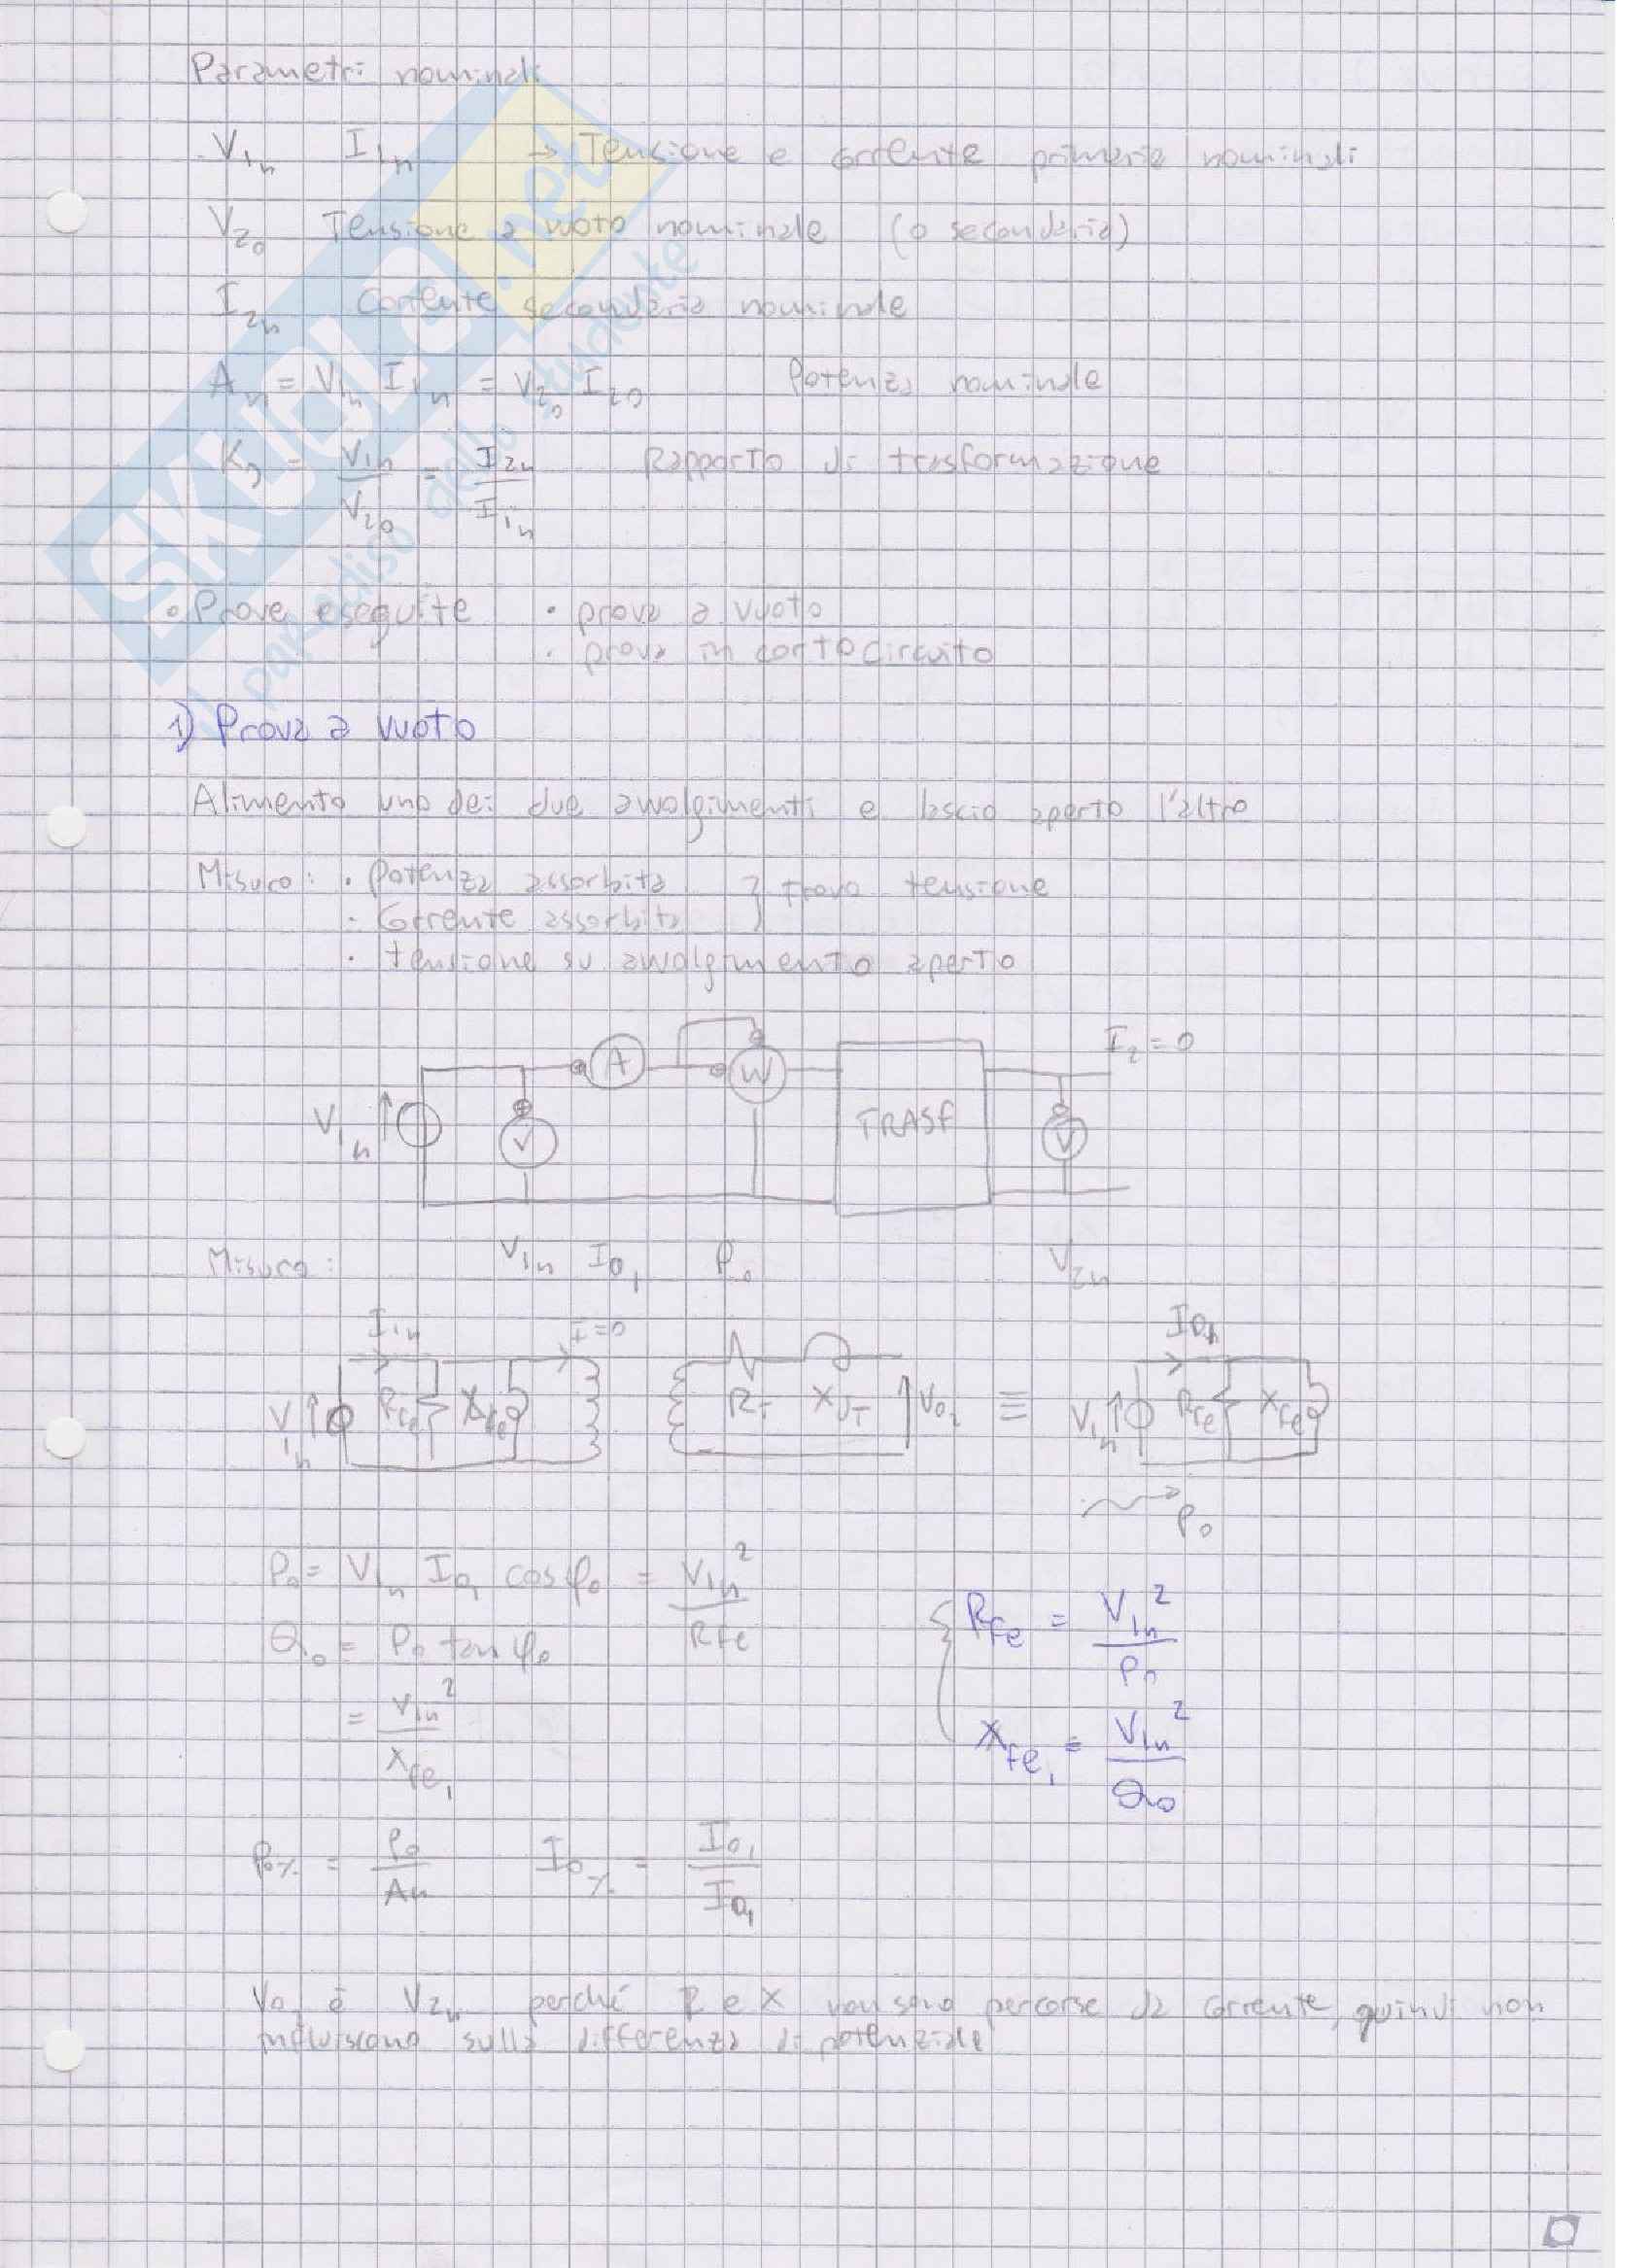 Parametri nominali
V1n I1n → Tensione e corrente primarie nominali
V20 Tensione a vuoto nominale (o secondaria)
I2n Corrente secondaria nominale
An = V1n I1n = V20 I20 Potenza nominale
K0 = V1n / V20 = I2n / I1n Rapporto di trasformazione
• Prove eseguite • prova a vuoto
• prova in cortocircuito
1) Prova a vuoto
Alimento uno dei due avvolgimenti e lascio aperto l'altro
Misuro: • Potenza assorbita } trovo tensione
• Corrente assorbita
• tensione su avvolgimento aperto
I2 = 0
A W
V1n V TRASF V
Misuro: V1n I01 P0 V2n
I1n I=0 I01
V1n Rfe Xfe RT XVT V02 ≡ V1n Rfe Xfe
P0
P0 = V1n I01 cosφ0 = V1n² / Rfe
Q0 = P0 tanφ0
= V1n² / Xfe1
{ Rfe = V1n² / P0
Xfe1 = V1n² / Q0
P0% = P0 / An I0% = I01 / I01
V02 è V2n perché R e X non sono percorse da corrente, quindi non
influiscono sulla differenza di potenziale
SKUOLA.net
il paradiso dello studente